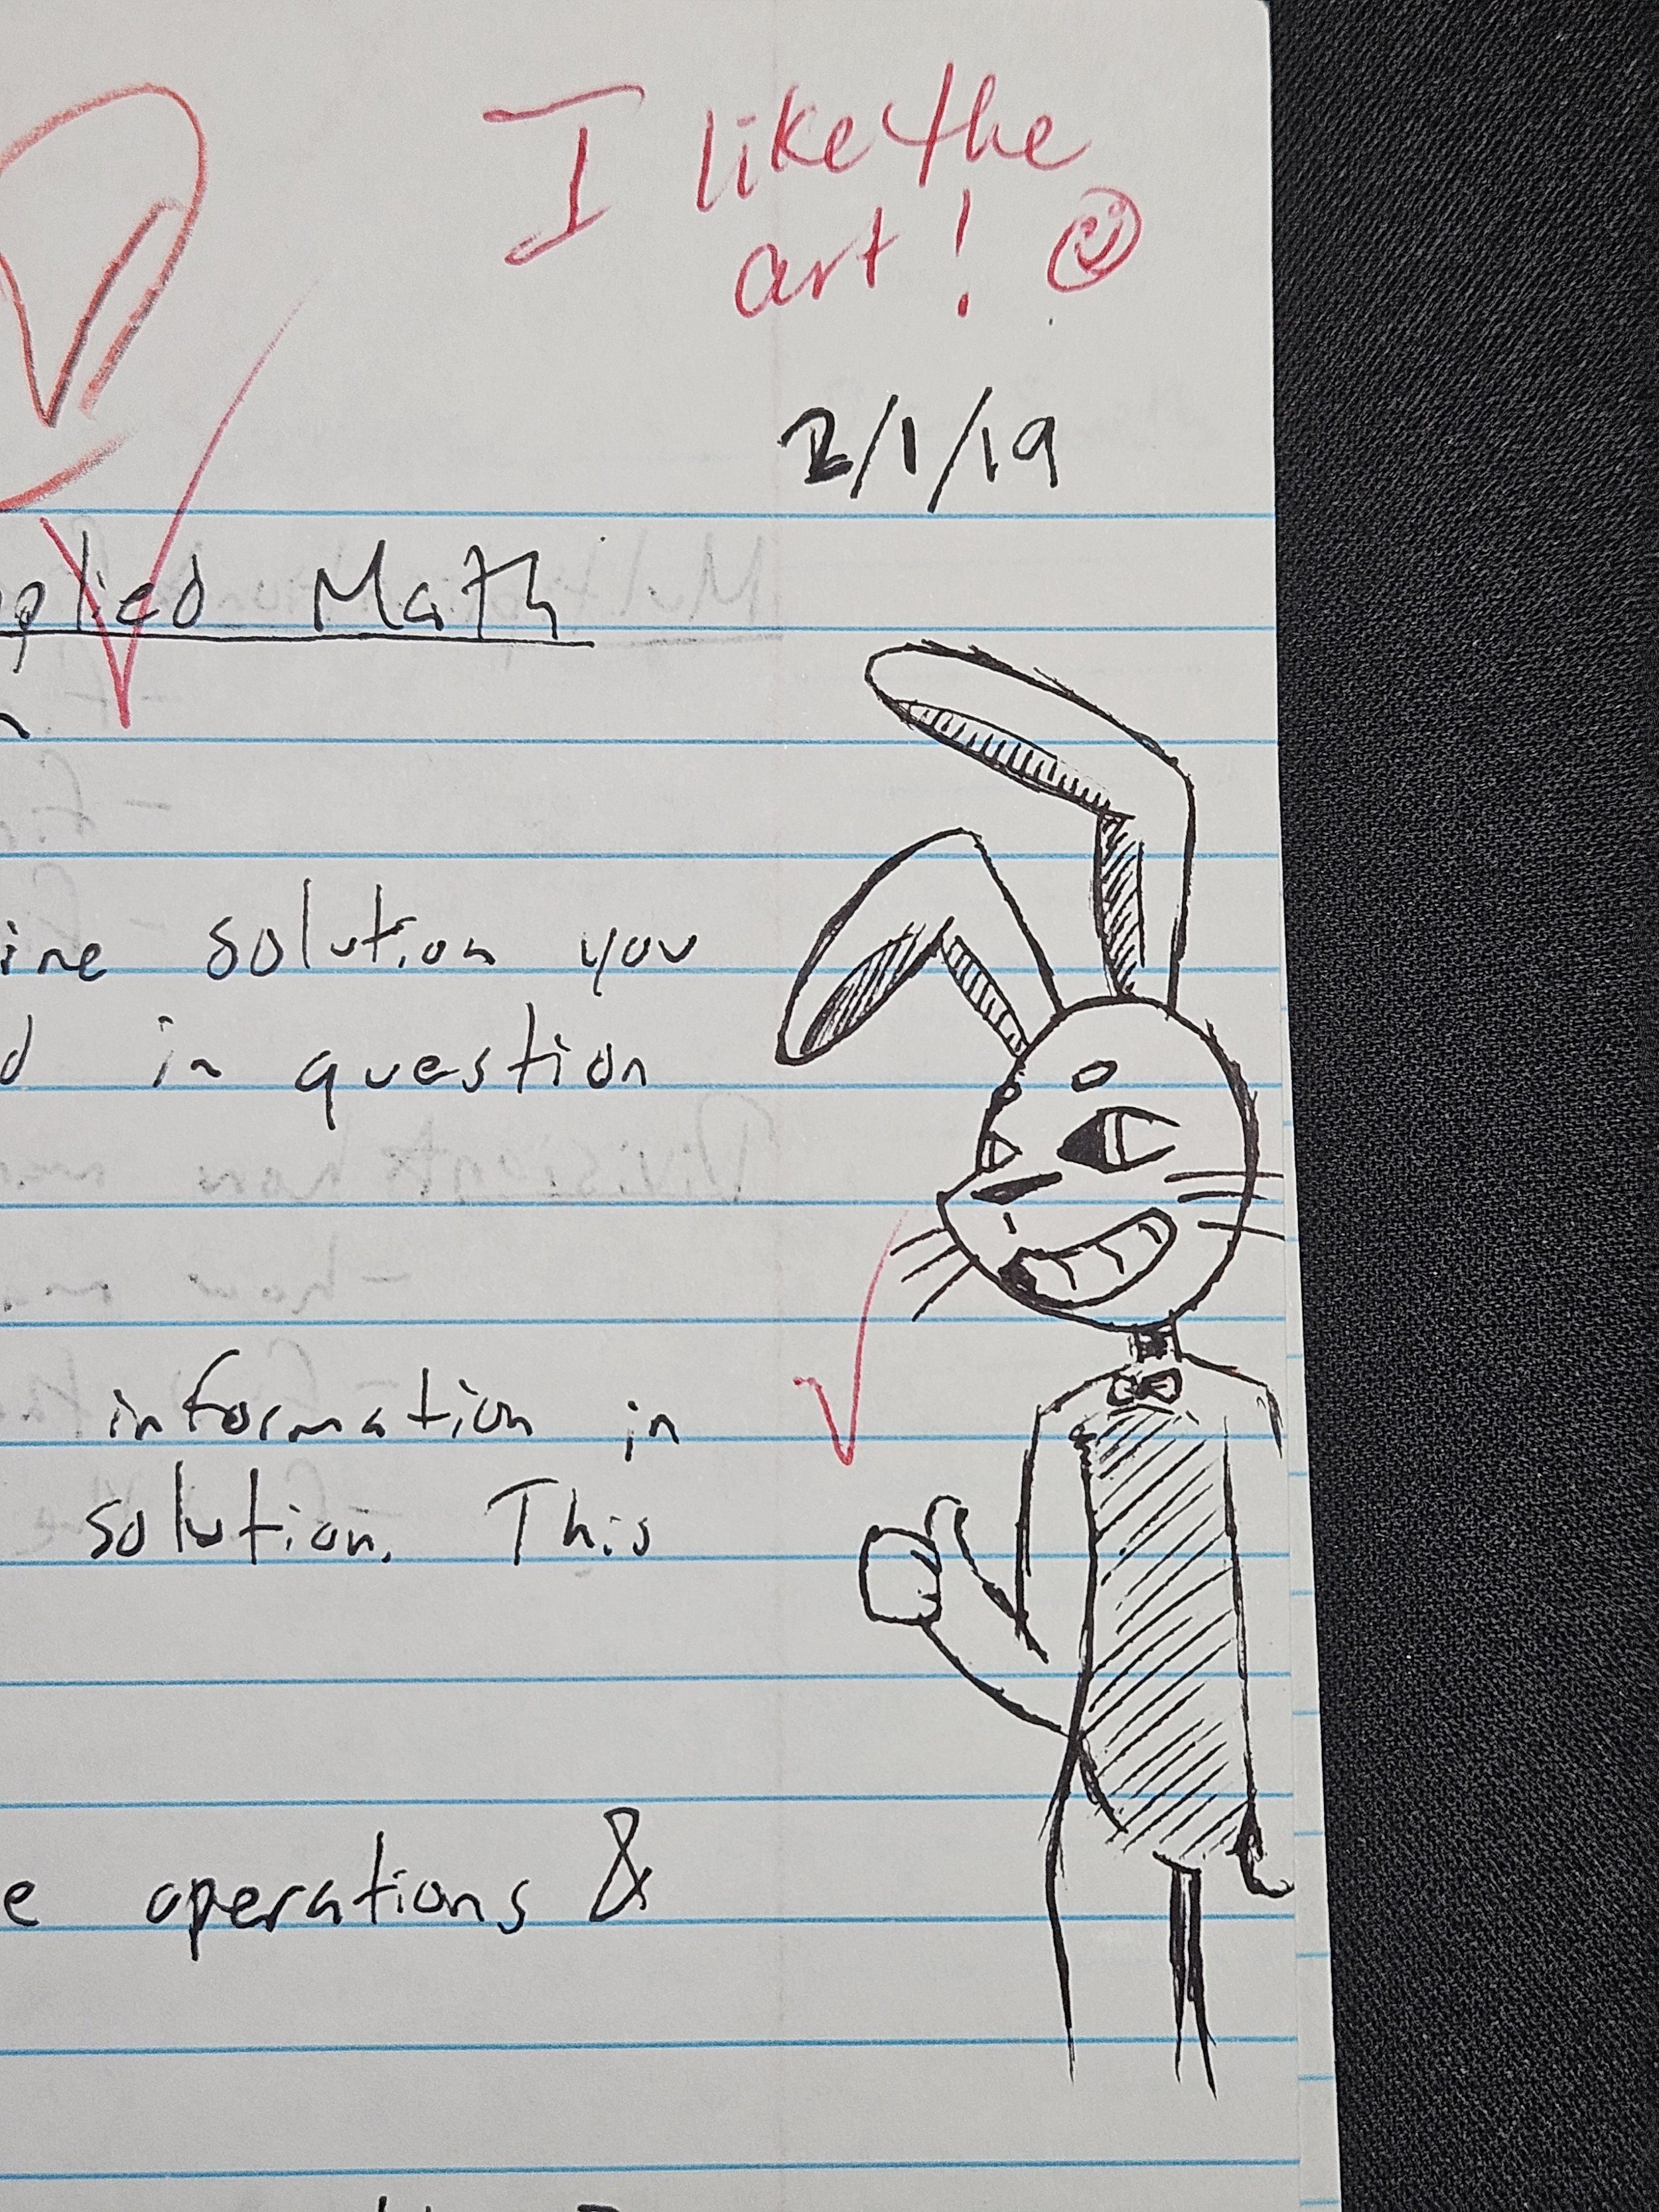 I like the
art!
2/1/19
pplied Math
n
ine solution you
d in question
information in
solution. This
e operations &